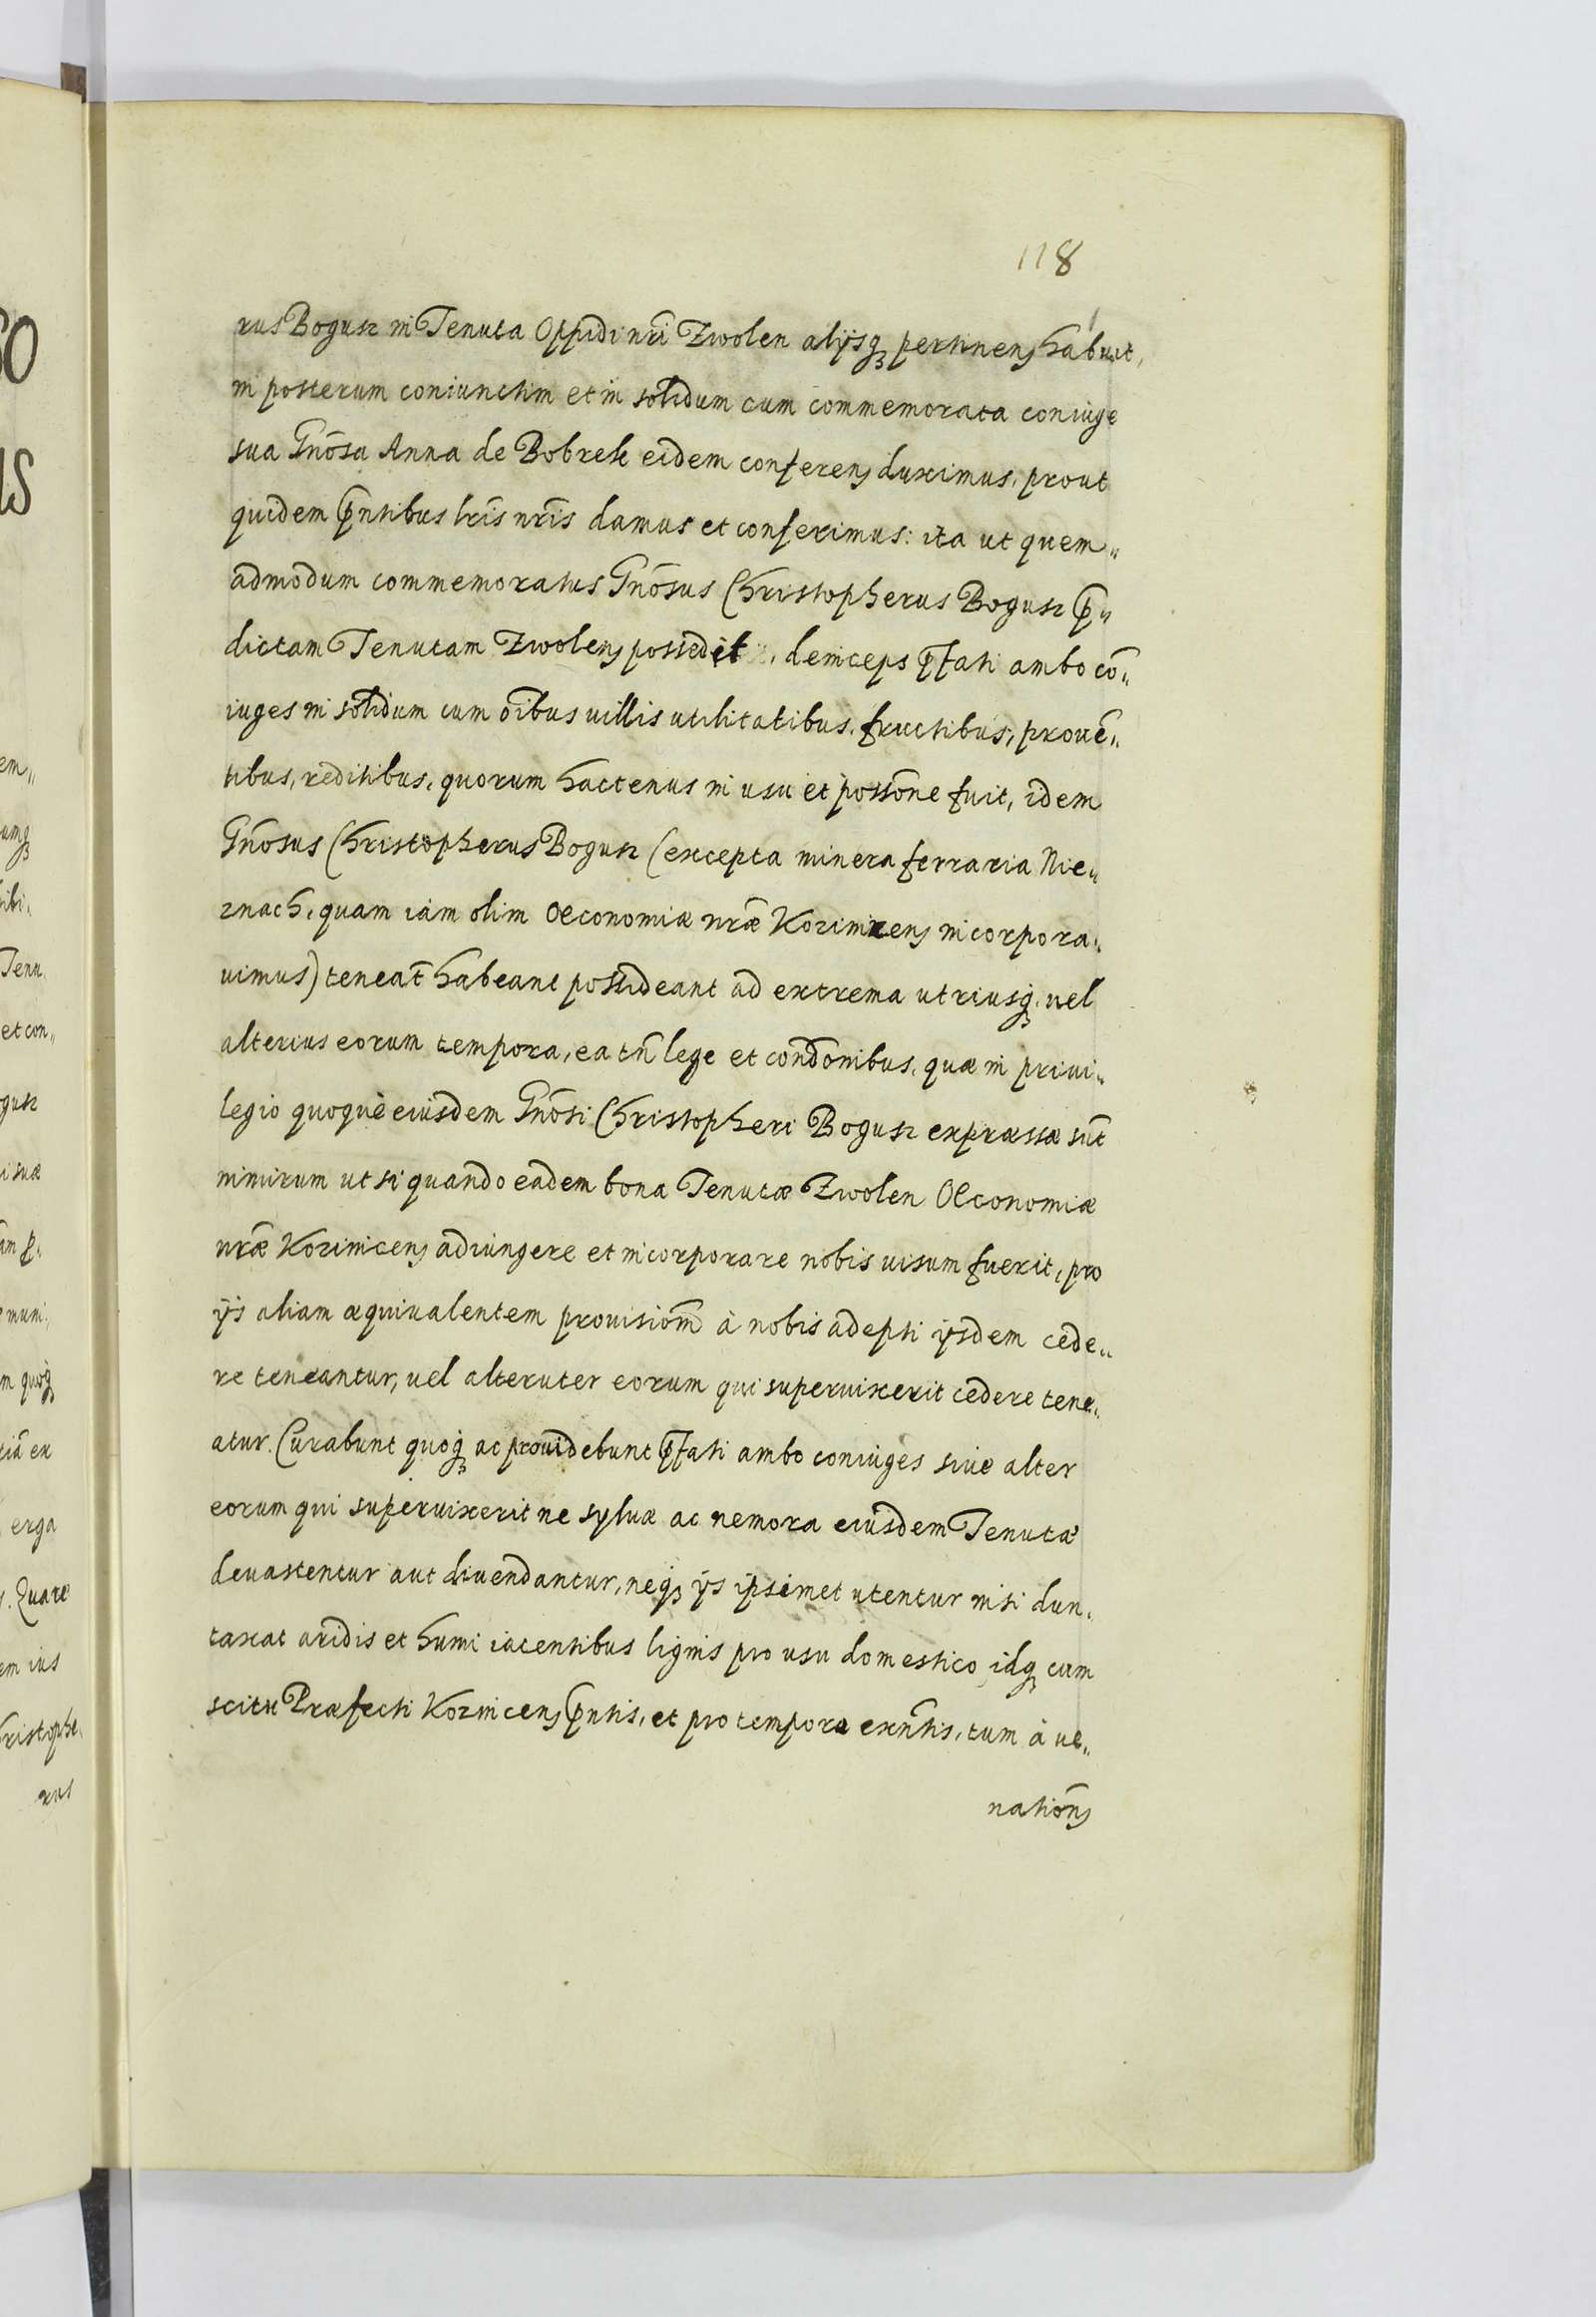 118
rus Bogusz in Tenuta Oppidi nrĩ Zwolen alijsq3 pertinens habuit,
in posterum coniunctim et in solidum cum commemorata coniuge
sua Gnõsa Anna de Bobrek eidem conferens duximus, prout
quidem p̃ntibus lrĩs nrĩs damus et conferimus: ita ut quem„
admodum commemoratus Gnõsus Christopherus Bogusz p̃„
dictam Tenutam Zwolens possedit, deinceps p̃fati ambo cõ„
iuges in solidum cum oĩbus uillis utilitatibus, fructibus, prouẽ„
tibus, reditibus, quorum hactenus in usu et possõne fuit, idem
Gnõsus Christopherus Bogusz (excepta minera ferraria Nie„
znach, quam iam olim Oeconomiæ nræ̃ Kozinicens incorpora„
uimus) teneãt habeant possideant ad extrema utriusq3 uel
alterius eorum tempora, ea tñ lege et condõnibus, quæ in priui„
legio quoque eiusdem Gnõsi Christopheri Bogusz expræssæ sũt
nimirum ut si quando eadem bona Tenutæ Zwolen Oeconomiæ
nræ̃ Kozinicens adiungere et incorporare nobis uisum fuerit, pro
ijs aliam æquiualentem prouisiõm à nobis adepti ijsdem cede„
re teneantur, uel alteruter eorum qui superuixerit cedere tene„
atur. Curabunt quoq3 ac prouidebunt p̃fati ambo coniuges siue alter
eorum qui superuixerit ne syluæ ac nemora eiusdem Tenutæ
deuastentur aut diuendantur, neq3 ijs ipsimet utentur nisi dun„
taxat aridis et humi iacentibus lignis pro usu domestico, idq3 cum
scitu Præfecti Koznicens p̃ntis, et pro tempora exñtis, tum à ue„
natiõns
em„
Tenu
et con„
gusz
i suæ
muni„
m quoq3
tiã ex
erga
. Quare
em ius
hristophe„
rus